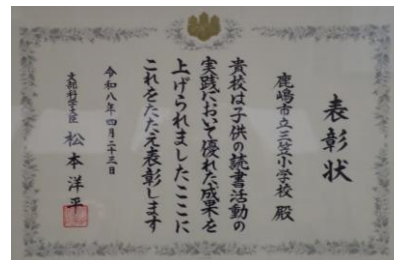 表彰状
鹿嶋市立三笠小学校 殿
貴校は子供の読書活動の
実践において優れた成果を
上げられましたここに
これをたたえ表彰します
令和八年四月二十三日
文部科学大臣 松本洋平